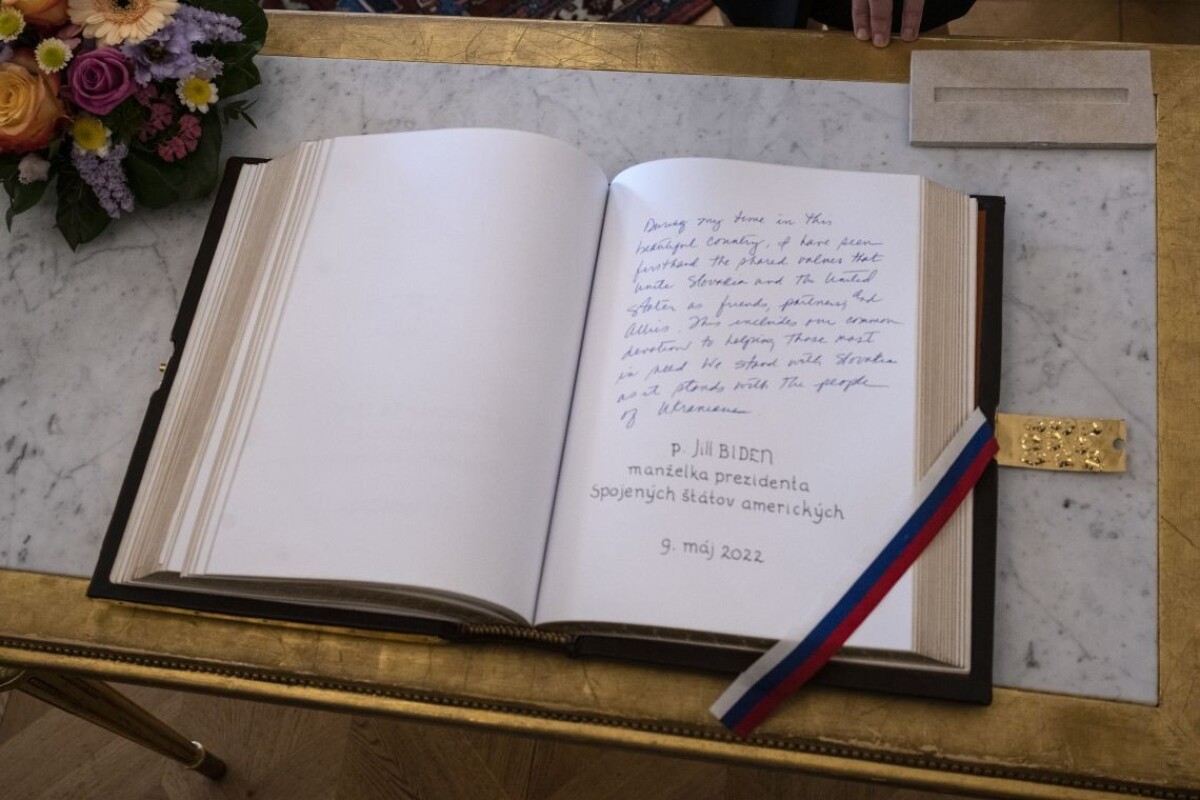 During my time in this
beautiful country, I have seen
firsthand the shared values that
unite Slovakia and the United
States as friends, partners, and
Allies. This includes our common
devotion to helping those most
in need. We stand with Slovakia
as it stands with the people
of Ukraniane.
p. Jill BIDEN
manželka prezidenta
Spojených štátov amerických
9. máj 2022